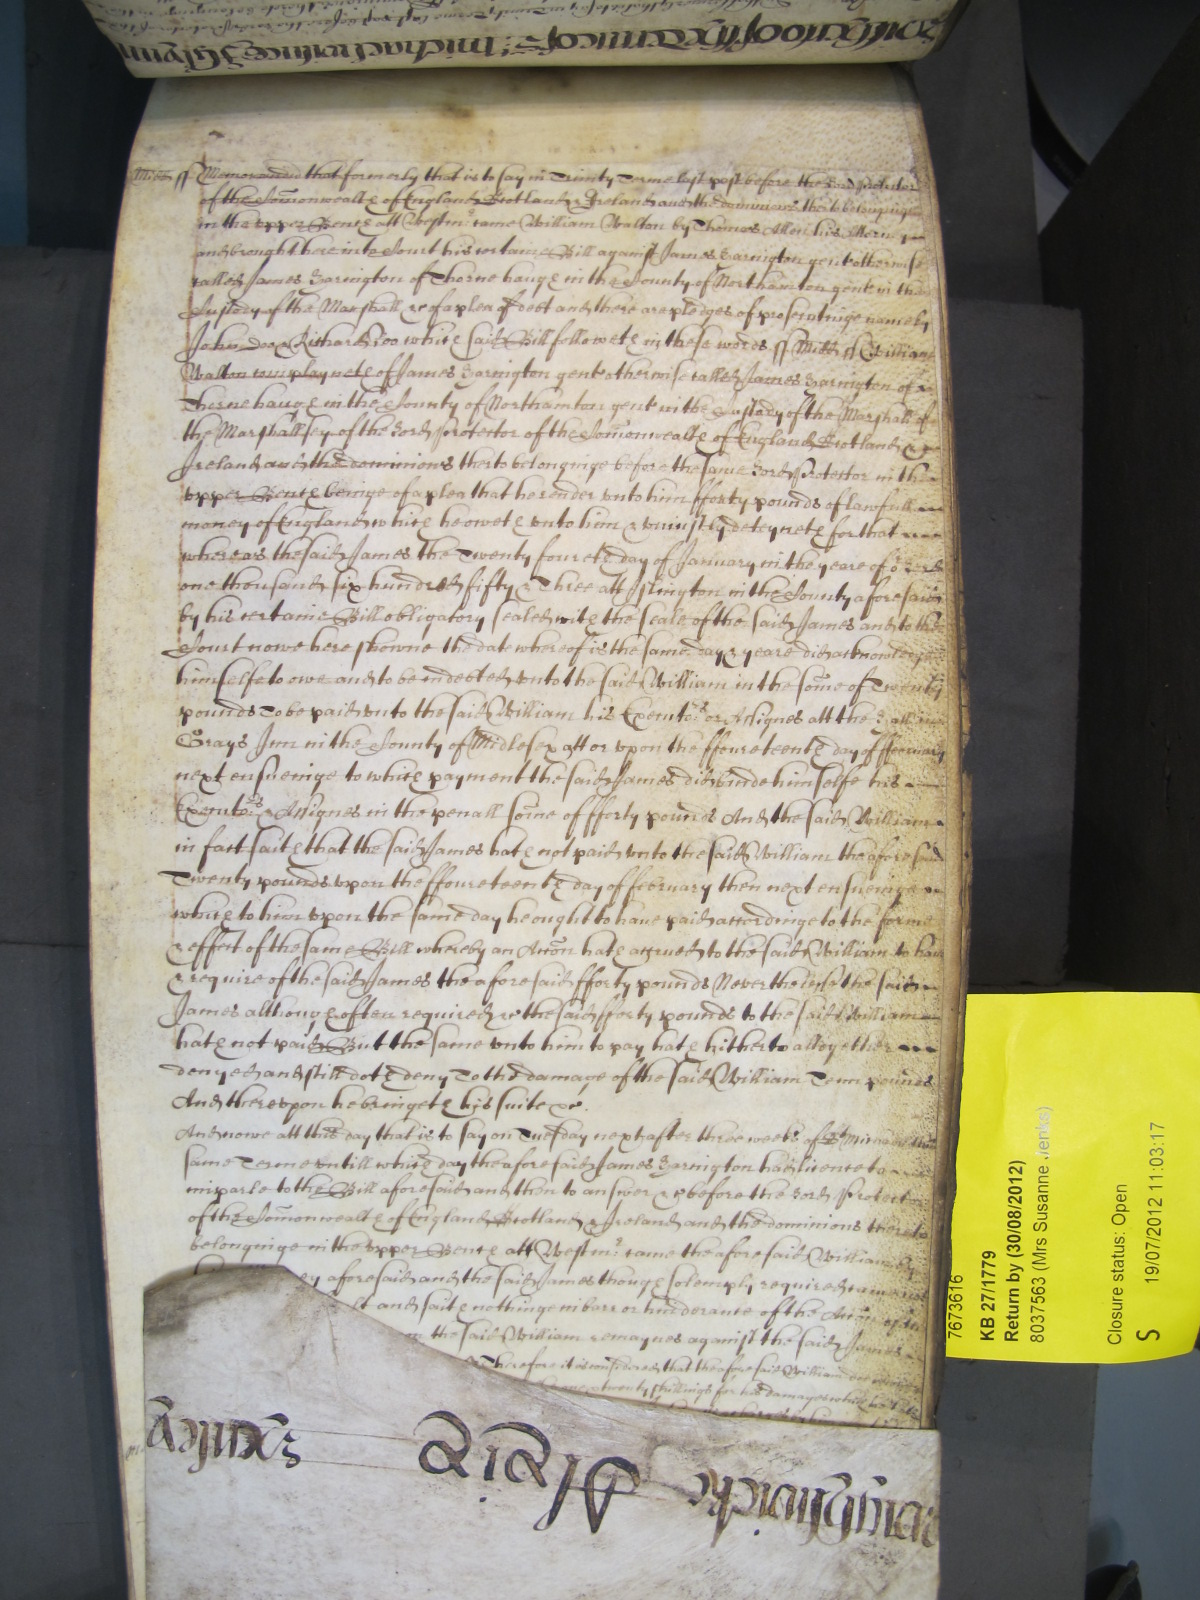 Midds ss Memorandd that formerly that is to say in Trinity Terme last past before the Lord Protector
of the Com̄onwealth of England Scotland & Ireland and the dominions thereto belonginge
in the vpper Bench att Westmr came William Walton by Thomas Allen his Atterny
and brought here into Court his certaine Bill against James Yarington gent otherwise
called James Yarington of Thorne haugh in the County of Northamton gent in the
Custody of the Marshall &c of a plea of debt and there are pledges of prosecutinge namely
John Doo & Richard Roo which said Bill followeth in these words ss Midds ss William
Walton complayneth of James Yarington gent otherwise called James Yarington of
Thorne haugh in the County of Northamton gent in the Custody of the Marshall of
the Marshallsey of the Lord Protector of the Com̄onwealth of England Scotland &
Ireland and the dominions therto belonginge before the same Lord Protector in the
vpper Bench beinge of a plea that he render vnto him fforty pounds of lawfull
money of England which he oweth vnto him & vniustly deteyneth for that
whereas the said James the Twenty fourth day of January in the yeare of o Lord
one thousand six hundred fifty & Three att Islington in the County aforesaid
by his certaine Bill obligatory sealed with the seale of the said James and to the
Court nowe here showne the date whereof is the same day & yeare did acknowledge
himselfe to owe and to be indebted vnto the said William in the som̄e of Twenty
pounds To be paid vnto the said William his Executors or Assignes att the
Grays Inn in the County of Midlesex att or vpon the ffoureteenth day of ffebruary
next ensueinge to which payment the said James did binde himselfe his
Executors & Assignes in the penall som̄e of fforty pounds And the said William
in fact saith that the said James hath not paid vnto the said William the aforesaid
Twenty pounds vpon the ffoureteenth day of ffebruary then next ensueinge
which to him vpon the same day he ought to have paid accordinge to the forme
& effect of the same Bill whereby an Accon̄ hath accrued to the said William to have
& require of the said James the aforesaid fforty pounds Neverthelesse the said
James although often required &c the said fforty pounds to the said William
hath not paid But the same vnto him to pay hath hitherto altogether
denyed and still doth deny To the damage of the said William Tenn pounds
And therevpon he bringeth his suite &c.
And nowe att this day that is to say on Tuesday next after three weeks of St Michael the
same Terme vntill which day the aforesaid James Yarington had licence to
imparle to the Bill aforesaid and then to answer &c before the Lord Protector
of the Com̄onwealth of England Scotland & Ireland and the dominions thereto
belonginge in the vpper Bench att Westmr came the aforesaid William by
aforesaid and the said James though solemply required came not
and saith nothinge in barr or hinderance of the Accon̄ of the
the said William remaynes against the said James
Therefore it is considered that the aforesaid William
twenty shillings for his damages which he
7673616
KB 27/1779
Return by (30/08/2012)
8037563 (Mrs Susanne Jenks)
Closure status: Open
S 19/07/2012 11:03:17